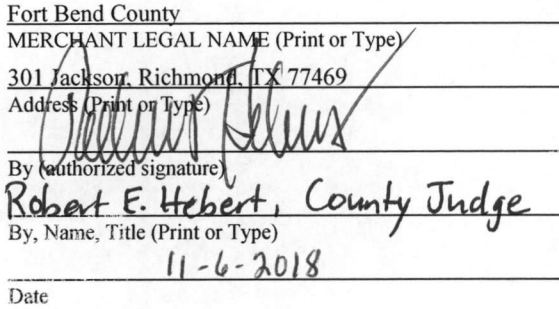 Fort Bend County
MERCHANT LEGAL NAME (Print or Type)
301 Jackson, Richmond, TX 77469
Address (Print or Type)
By (authorized signature)
Robert E. Hebert, County Judge
By, Name, Title (Print or Type)
11-6-2018
Date